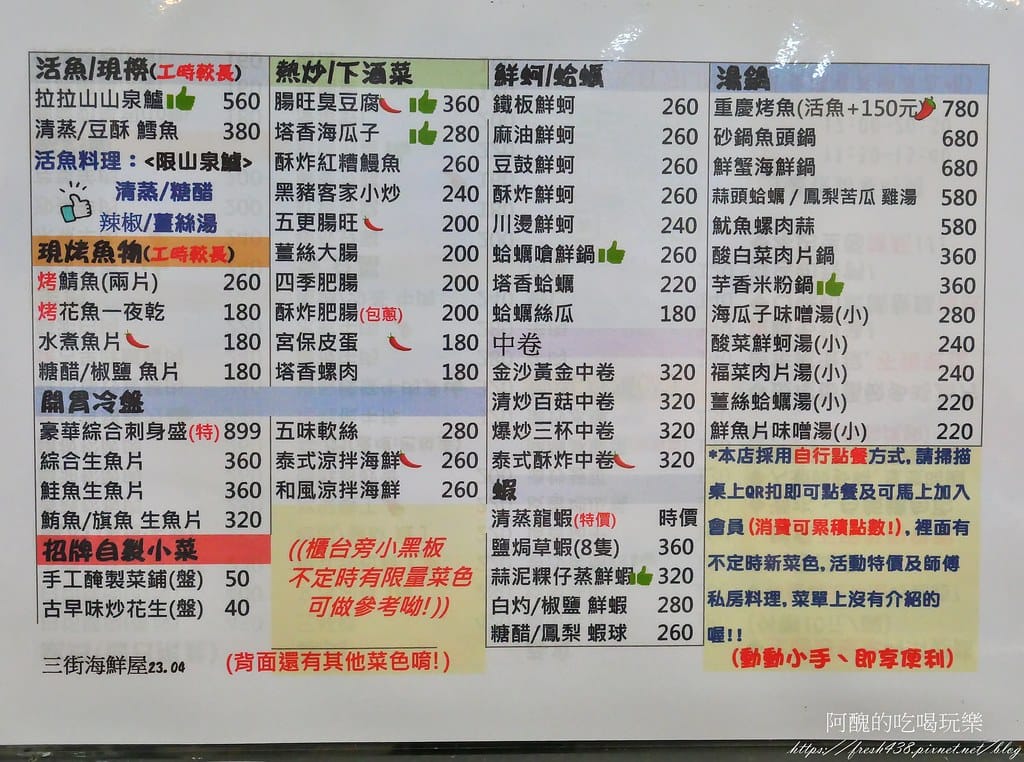 活魚/現撈(工時較長)
拉拉山山泉鱸 560
清蒸/豆酥 鱈魚 380
活魚料理：<限山泉鱸>
清蒸/糖醋
辣椒/薑絲湯
現烤魚物(工時較長)
烤鯖魚(兩片) 260
烤花魚一夜乾 180
水煮魚片 180
糖醋/椒鹽 魚片 180
開胃冷盤
豪華綜合刺身盛(特) 899
綜合生魚片 360
鮭魚生魚片 360
鮪魚/旗魚 生魚片 320
招牌自製小菜
手工醃製菜鋪(盤) 50
古早味炒花生(盤) 40
三街海鮮屋23.04
熱炒/下酒菜
腸旺臭豆腐 360
塔香海瓜子 280
酥炸紅糟鰻魚 260
黑豬客家小炒 240
五更腸旺 200
薑絲大腸 200
四季肥腸 200
酥炸肥腸(包蔥) 200
宮保皮蛋 180
塔香螺肉 180
五味軟絲 280
泰式涼拌海鮮 260
和風涼拌海鮮 260
((櫃台旁小黑板
不定時有限量菜色
可做參考呦!))
(背面還有其他菜色唷!)
鮮蚵/蛤蠣
鐵板鮮蚵 260
麻油鮮蚵 260
豆鼓鮮蚵 260
酥炸鮮蚵 260
川燙鮮蚵 240
蛤蠣嗆鮮鍋 260
塔香蛤蠣 220
蛤蠣絲瓜 180
中卷
金沙黃金中卷 320
清炒百菇中卷 320
爆炒三杯中卷 320
泰式酥炸中卷 320
蝦
清蒸龍蝦(特價) 時價
鹽焗草蝦(8隻) 360
蒜泥粿仔蒸鮮蝦 320
白灼/椒鹽 鮮蝦 280
糖醋/鳳梨 蝦球 260
湯鍋
重慶烤魚(活魚+150元) 780
砂鍋魚頭鍋 680
鮮蟹海鮮鍋 680
蒜頭蛤蠣/鳳梨苦瓜 雞湯 580
魷魚螺肉蒜 580
酸白菜肉片鍋 360
芋香米粉鍋 360
海瓜子味噌湯(小) 280
酸菜鮮蚵湯(小) 240
福菜肉片湯(小) 240
薑絲蛤蠣湯(小) 220
鮮魚片味噌湯(小) 220
*本店採用自行點餐方式,請掃描
桌上QR扣即可點餐及可馬上加入
會員(消費可累積點數!),裡面有
不定時新菜色,活動特價及師傅
私房料理,菜單上沒有介紹的
喔!!
(動動小手、即享便利)
阿醜的吃喝玩樂
https://fresh438.pixnet.net/blog